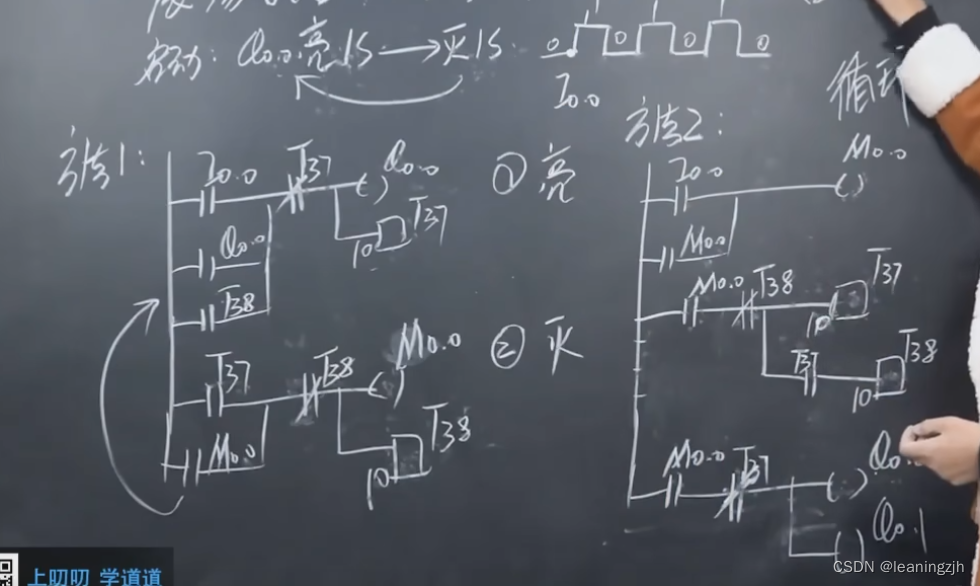 启动: Q0.0亮1S → 灭1S
0 0 0 0
I0.0
循环
方法1:
I0.0 T37 Q0.0
10 T37
Q0.0
T38
① 亮
T37 T38 M0.0
10 T38
M0.0
② 灭
方法2:
I0.0 M0.0
M0.0
M0.0 T38 T37
10
T37 T38
10
M0.0 T37 Q0.
Q0.1
上叨叨 学道道
CSDN @leaningzjh